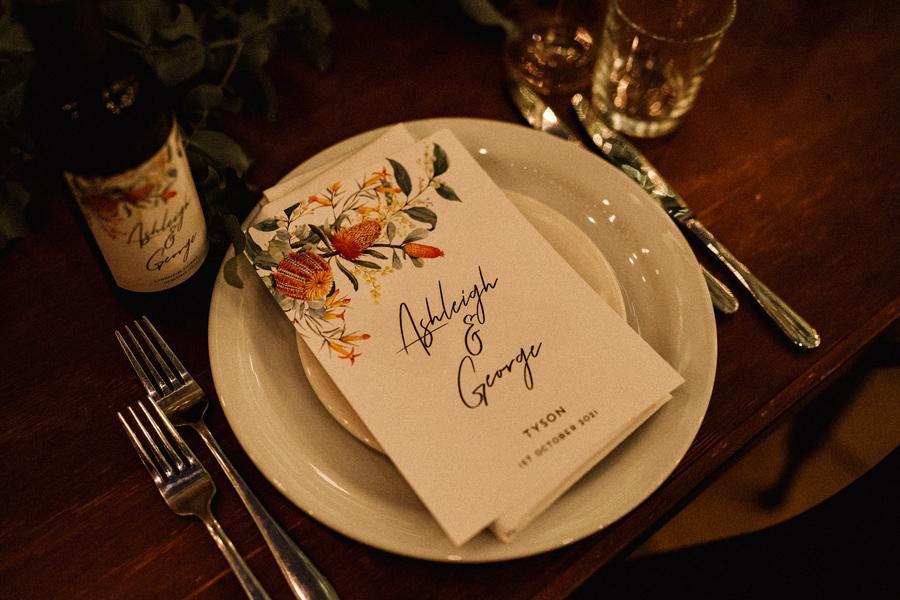 Ashleigh
&
George
Ashleigh
&
George
TYSON
1ST OCTOBER 2021